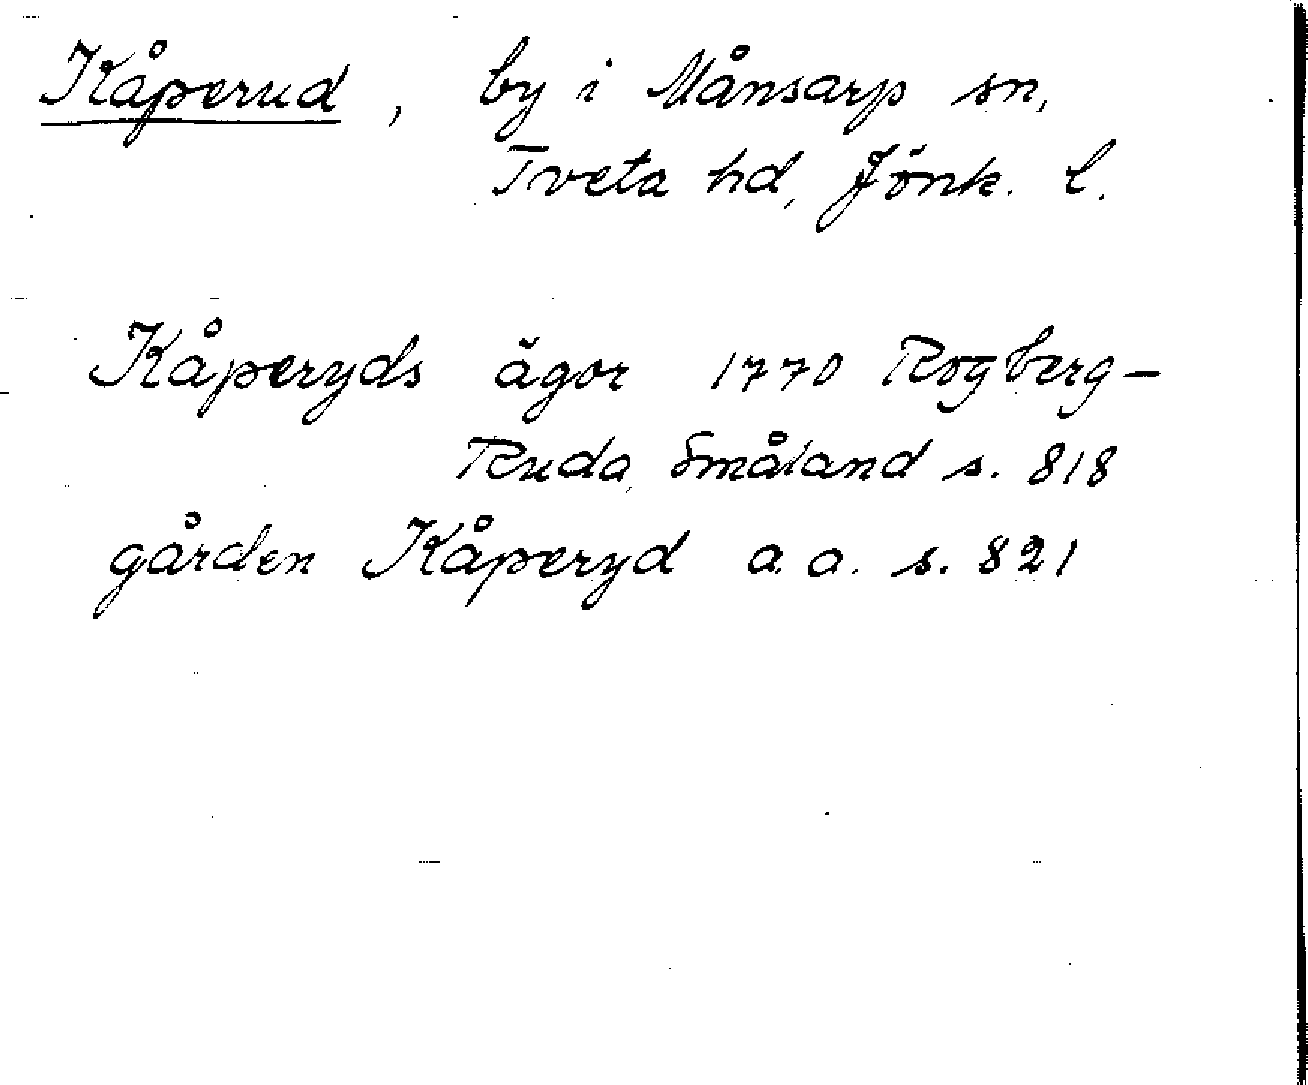 Kåperud, by i Månsarp sn,
Tveta hd, Jönk. l.
Kåperyds ägor 1770 Rogberg-
Ruda, Småland s. 818
gården Kåperyd a. a. s. 821